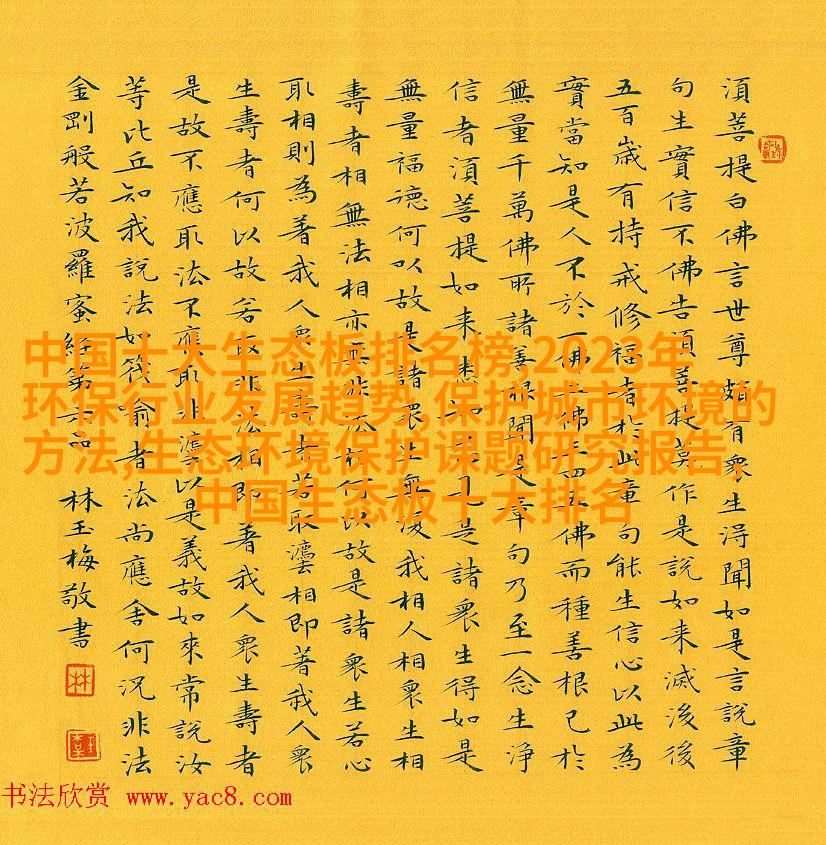 須菩提白佛言世尊頗有眾生得聞如是言說章
句生實信不佛告須菩提莫作是說如来滅後後
五百歲有持戒修福者於此章句能生信心以此為
實當知是人不於一佛二佛三四五佛而種善根已於
無量千萬佛所諸善根聞是章句乃至一念生淨
信者須菩提如来悉知悉見是諸眾生得如是
無量福德何以故是諸眾生無復我相人相眾生相
壽者相無法相亦無非法相何以故是諸眾生若心
取相則為著我人眾生壽者若取灋相即著我人眾
生壽者何以故若取非法相即著我人眾生壽者
是故不應取法不應取非灋以是義故如來常說汝
等比丘知我說法如筏喻者法尚應舍何況非法
金剛般若波羅蜜經第六品 林玉梅敬書
林
中国十大生态板排名榜,2023年
环保行业发展趋势,保护城市环境的
方法,生态环境保护课题研究报告,
中国生态板十大排名
书法欣赏 www.yac8.com